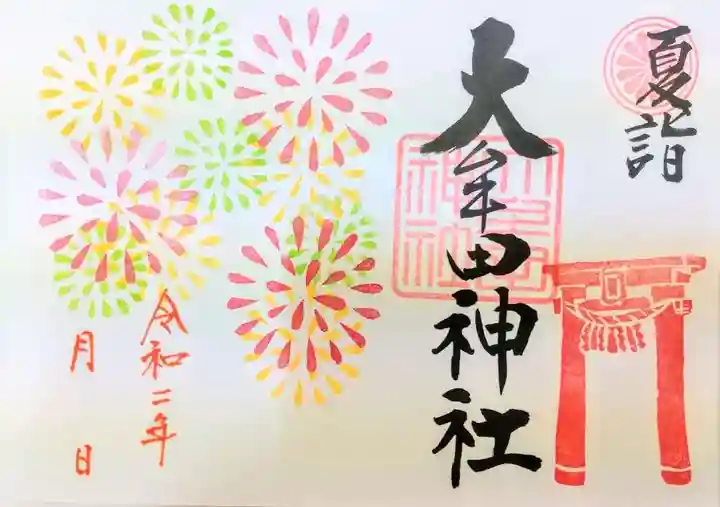 夏詣
大牟田神社
令和二年
月 日